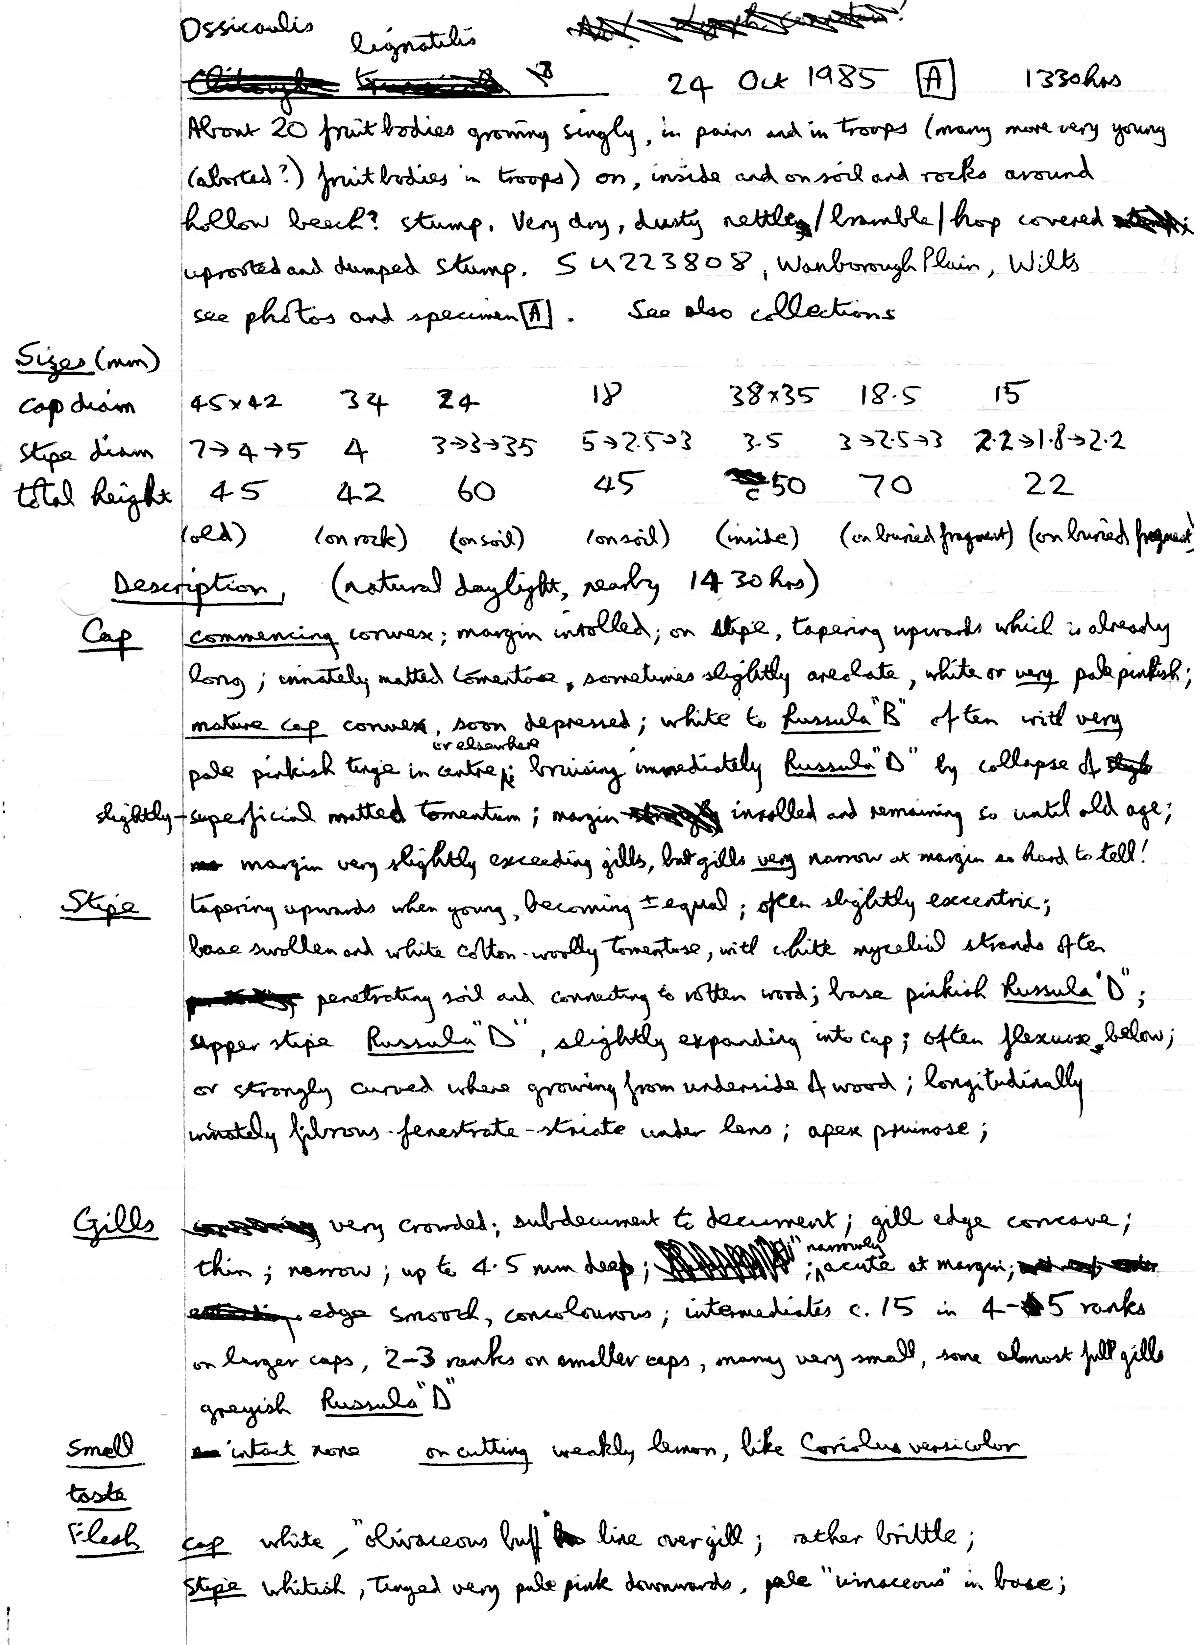 Ossicaulis lignatilis
24 Oct 1985 [A] 1330hrs
About 20 fruit bodies growing singly, in pairs and in troops (many more very young
(aborted?) fruit bodies in troops) on, inside and on soil and rocks around
hollow beech? stump. Very dry, dusty nettle/bramble/hop covered
uprooted and dumped stump. SU223808, Wanborough Plain, Wilts
see photos and specimen [A]. See also collections
Sizes (mm)
cap diam 45x42 34 24 18 38x35 18.5 15
stipe diam 7→4→5 4 3→3→35 5→2.5→3 3.5 3→2.5→3 2.2→1.8→2.2
total height 45 42 60 45 c50 70 22
(old) (on rock) (on soil) (on soil) (inside) (on buried fragment) (on buried fragment)
Description, (natural daylight, nearby 1430hrs)
Cap commencing convex; margin inrolled; on stipe, tapering upwards which is already
long; innately matted tomentose, sometimes slightly areolate, white or very pale pinkish;
mature cap convex, soon depressed; white to Russula "B" often with very
pale pinkish tinge in centre or elsewhere; bruising immediately Russula "D" by collapse of
slightly-superficial matted tomentum; margin inrolled and remaining so until old age;
margin very slightly exceeding gills, but gills very narrow at margin so hard to tell!
Stipe tapering upwards when young, becoming ± equal; often slightly excentric;
base swollen and white cotton-woolly tomentose, with white mycelial strands often
penetrating soil and connecting to rotten wood; base pinkish Russula "D";
upper stipe Russula "D", slightly expanding into cap; often flexuose below;
or strongly curved where growing from underside of wood; longitudinally
innately fibrous-fenestrate-striate under lens; apex pruinose;
Gills very crowded; subdecurrent to decurrent; gill edge concave;
thin; narrow; up to 4.5 mm deep; narrowly acute at margin;
edge smooth, concolourous; intermediates c. 15 in 4-5 ranks
on larger caps, 2-3 ranks on smaller caps, many very small, some almost full gills
greyish Russula "D"
Smell intact none on cutting weakly lemon, like Coriolus versicolor
taste
Flesh cap white, "olivaceous buff" line over gill; rather brittle;
stipe whitish, tinged very pale pink downwards, pale "vinaceous" in base;